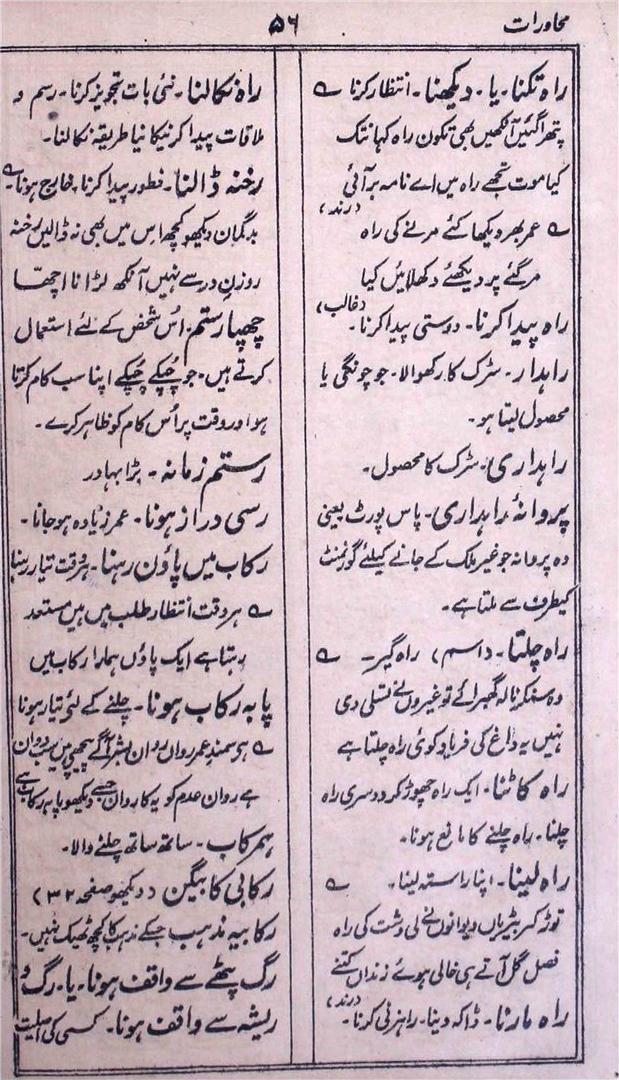 محاورات
۵۶
راہ تکنا۔ یا۔ دیکھنا۔ انتظار کرنا ؎
پتھرا گئیں آنکھیں بھی تکوں راہ کہانتک
کیا موت تجھے راہ میں اے نامہ بر آئی
(رند)
؎ عمر بھر دیکھا کئے مرنے کی راہ
مر گئے پر دیکھئے دکھلائیں کیا
(غالب)
راہ پیدا کرنا۔ دوستی پیدا کرنا۔
راہدار۔ سڑک کا رکھوالا۔ جو چونگی یا
محصول لیتا ہو۔
راہداری۔ سڑک کا محصول۔
پروانۂ راہداری۔ پاس پورٹ یعنی
وہ پروانہ جو غیر ملک کے جانے کیلئے گورنمنٹ
کیطرف سے ملتا ہے۔
راہ چلتا۔ (اسم) راہ گیر۔ ؎
وہ سنکر نالہ گھبرائے تو غیروں نے تسلی دی
نہیں یہ داغ کی فریاد کوئی راہ چلتا ہے
راہ کاٹنا۔ ایک راہ چھوڑ کر دوسری راہ
چلنا۔ راہ چلنے کا مانع ہونا۔
راہ لینا۔ اپنا راستہ لینا۔ ؎
توڑ کر بیڑیاں دیوانوں نے لی دشت کی راہ
فصل گل آتے ہی خالی ہوئے زنداں کتنے
(رند)
راہ مارنا۔ ڈاکہ دینا۔ راہزنی کرنا۔
راہ نکالنا۔ نئی بات تجویز کرنا۔ رسم و
ملاقات پیدا کرنیکا نیا طریقہ نکالنا۔
رخنہ ڈالنا۔ فطور پیدا کرنا۔ خارج ہونا۔ ؎
بدگمان دیکھو کچھ اس میں بھی نہ ڈالیں رخنہ
روزن در سے نہیں آنکھ لڑانا اچھا
چھپا رستم۔ اُس شخص کے لئے استعمال
کرتے ہیں۔ جو چُپکے چُپکے اپنا سب کام کرتا
ہو اور وقت پر اُس کام کو ظاہر کرے۔
رستم زمانہ۔ بڑا بہادر
رسی دراز ہونا۔ عمر زیادہ ہو جانا۔
رکاب میں پاؤں رہنا۔ ہر وقت تیار رہنا
؎ ہر وقت انتظار طلب میں ہیں مستعد
رہتا ہے ایک پاؤں ہمارا رکاب میں
پا بہ رکاب ہونا۔ چلنے کے لئے تیار ہونا
؎ ہی سمند عمر رواں بشر آگے پیچھے ہیں سب دواں
ہے رواں عدم کو یہ کارواں جسے دیکھو پا بہ رکاب ہے
ہم رکاب۔ ساتھ ساتھ چلنے والا۔
رکابی کا بیگن (دیکھو صفحہ ۳۲)
رکابیہ مذہب جسکے مذہب کا کچھ ٹھیک نہیں۔
رگ پٹھے سے واقف ہونا۔ یا۔ رگ و
ریشہ سے واقف ہونا۔ کسی کی اصلیت